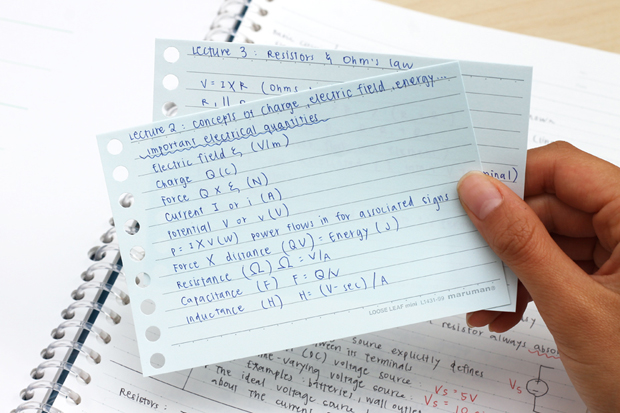 Lecture 3 : Resistors & Ohm's law
V = I X R (Ohms
R, ||
Lecture 2 : Concepts of charge, electric field, energy...
Important electrical quantities
Electric field ξ, (V/m)
Charge Q (C)
Force Q X ξ, (N)
Current I or i (A)
Potential V or v (V)
P = I X V (W) power flows in for associated signs
Force X distance (QV) = Energy (J)
Resistance (Ω) Ω = V/A
Capacitance (F) F = Q/V
Inductance (H) H = (V-sec) / A
LOOSE LEAF mini L1431-08 maruman
minal)
resistor always
source explicitly defines
its terminals
(DC) voltage source
-varying voltage source
Examples : batteries, wall
the ideal voltage source
about the current
Vs = 5V
Vs
Resistors :